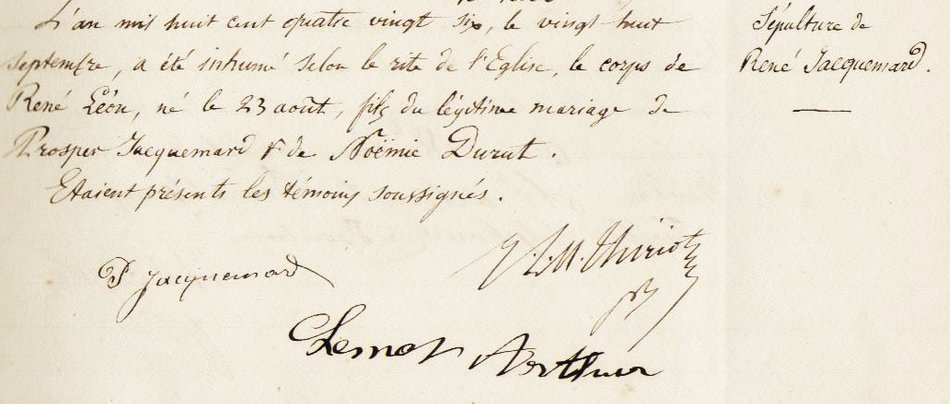 L'an mil huit cent quatre vingt six, le vingt huit
septembre, a été inhumé selon le rite de l'Eglise, le corps de
René Léon, né le 23 août, fils du légitime mariage de
Prosper Jacquemard & de Noëmie Durut.
Etaient présents les témoins soussignés.
Sépulture de
René Jacquemard.
P Jacquemard
Thuriot
Lemoy Arthur